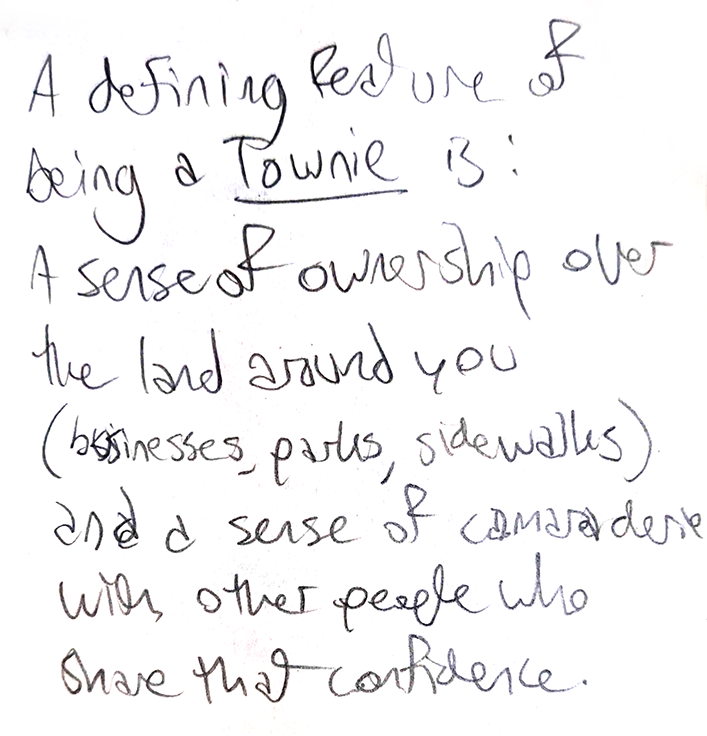 A defining feature of
being a Townie is:
A sense of ownership over
the land around you
(businesses, parks, sidewalks)
and a sense of camaraderie
with other people who
share that confidence.